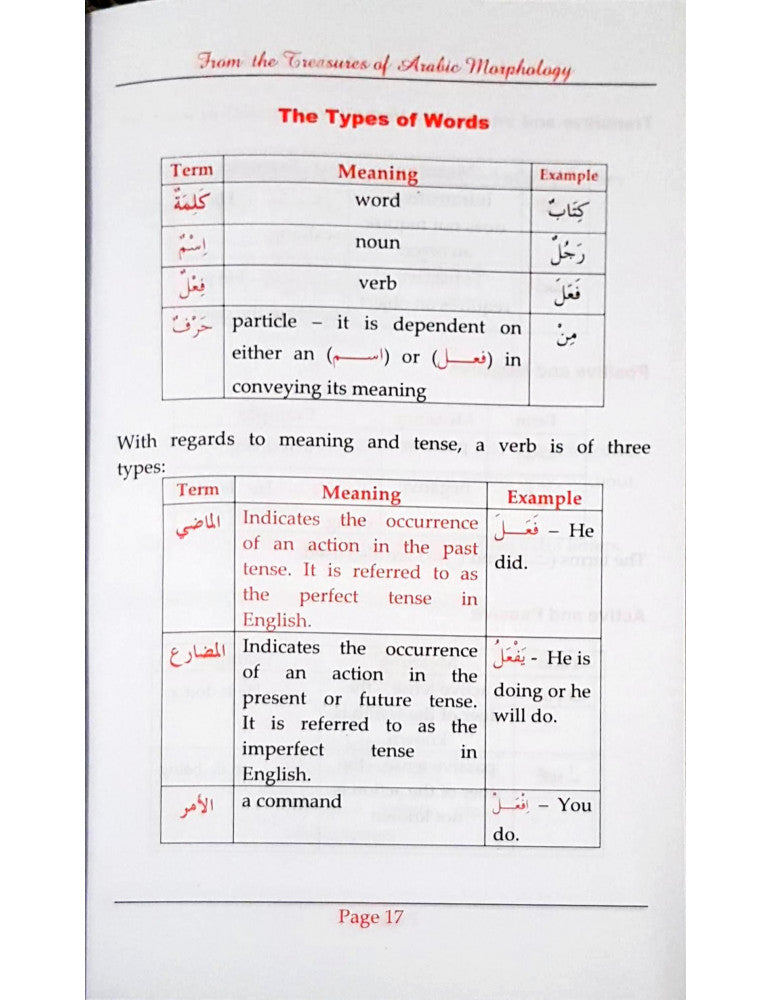 From the Treasures of Arabic Morphology
The Types of Words
Term Meaning Example
كَلِمَةٌ word كِتَابٌ
اِسْمٌ noun رَجُلٌ
فِعْلٌ verb فَعَلَ
حَرْفٌ particle – it is dependent on مِنْ
either an (اســـم) or (فعـــل) in
conveying its meaning
With regards to meaning and tense, a verb is of three
types:
Term Meaning Example
الماضي Indicates the occurrence فَعَـــلَ – He
of an action in the past did.
tense. It is referred to as
the perfect tense in
English.
المضارع Indicates the occurrence يَفْعَلُ - He is
of an action in the doing or he
present or future tense. will do.
It is referred to as the
imperfect tense in
English.
الأمر a command اِفْعَـــلْ – You
do.
Page 17